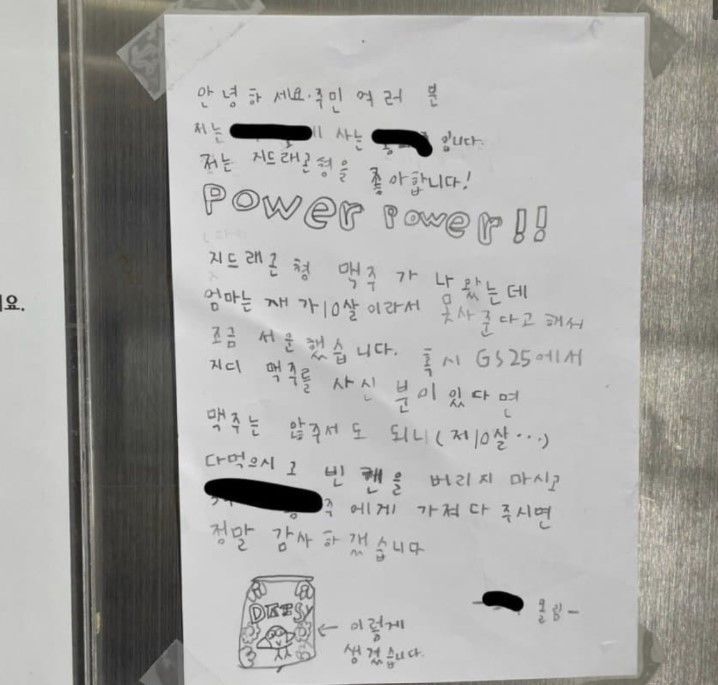 안녕하세요. 주민 여러분
저는 에 사는 입니다.
저는 지드래곤형을 좋아합니다!
Power Power!!
지드래곤 형 맥주가 나왔는데
엄마는 재가 10살이라서 못사준다고 해서
조금 서운했습니다. 혹시 GS25에서
지디 맥주를 사신 분이 있다면
맥주는 않주서도 되니(저10살...)
다먹으시고 빈 캔을 버리지 마시고
에게 가져다 주시면
정말 감사하겠습니다
- 올림-
DAISY
← 이렇게
생겼습니다.
요.